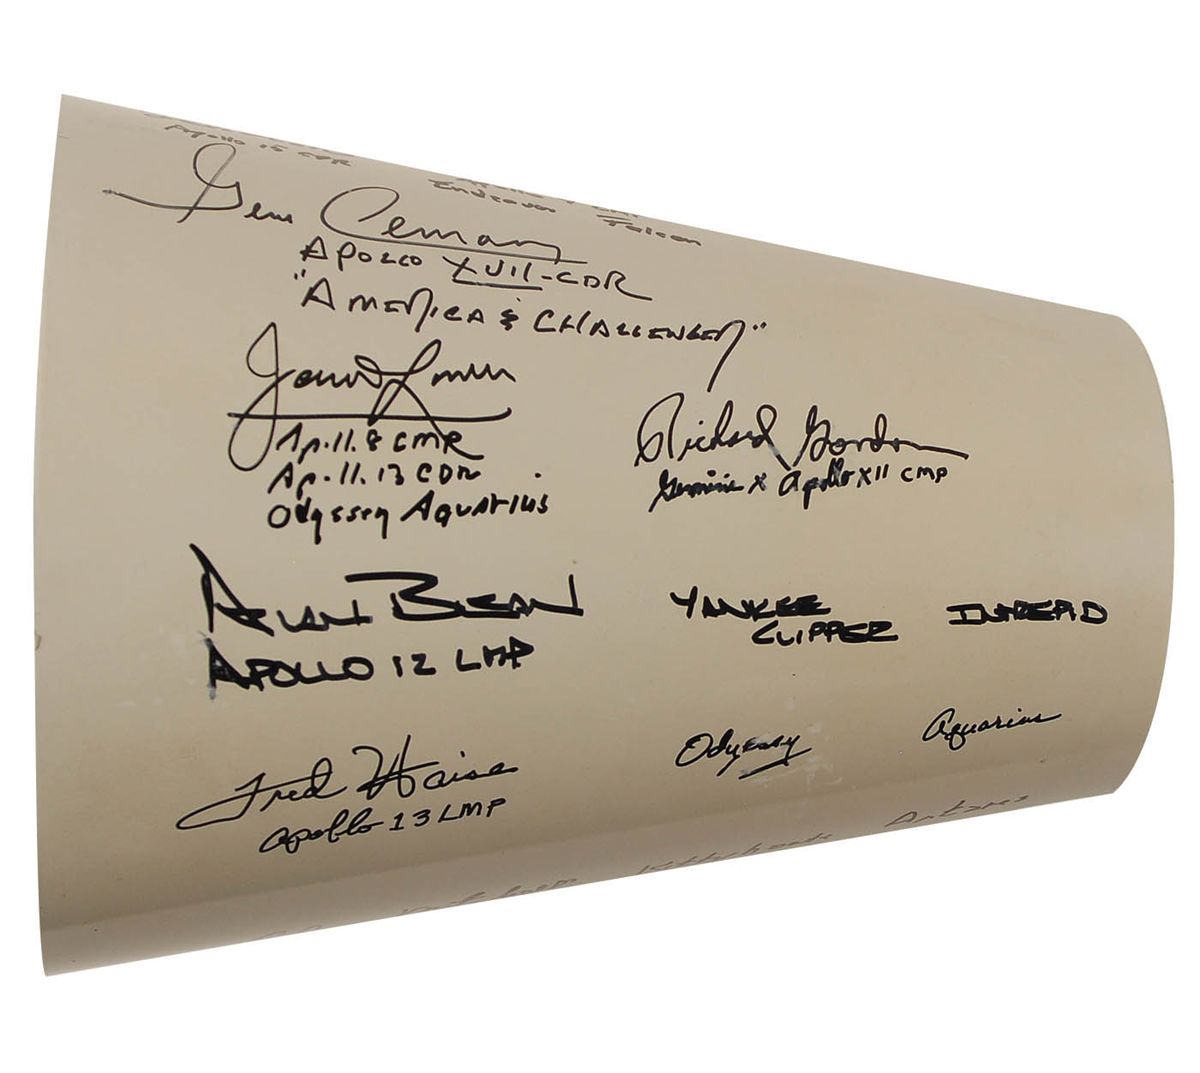 Apollo 15 CDR
Endeavor Falcon
Gene Cernan
APOLLO XVII-CDR
"AMERICA & CHALLENGER"
James Lovell
Ap.ll. 8 CMP
Ap.ll. 13 CDR
Odyssey Aquarius
Richard Gordon
Gemini X Apollo XII CMP
ALAN BEAN
APOLLO 12 LMP
YANKEE
CLIPPER
INTREPID
Fred Haise
Apollo 13 LMP
Odyssey
Aquarius
Kitty hawk Antares